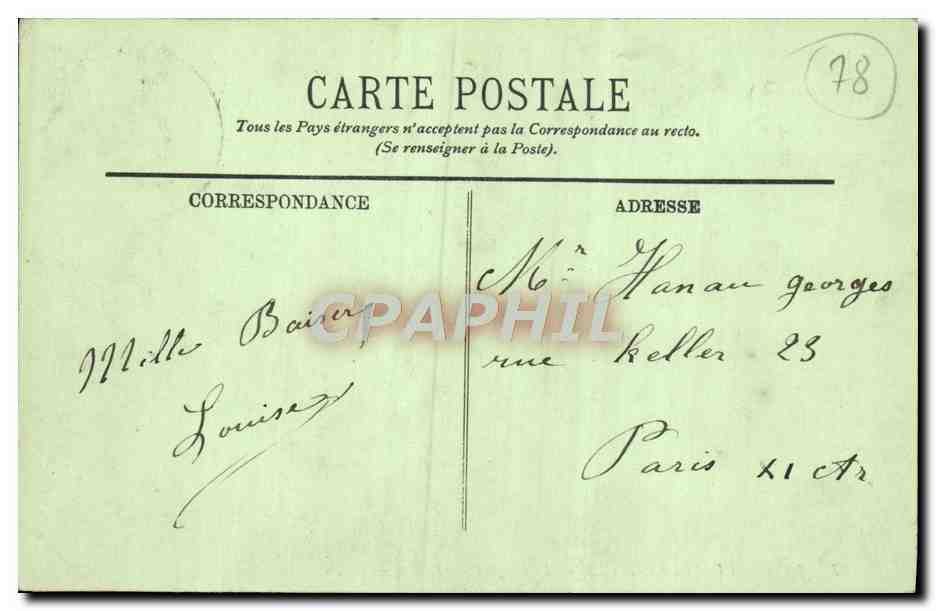 78
CARTE POSTALE
Tous les Pays étrangers n'acceptent pas la Correspondance au recto.
(Se renseigner à la Poste).
CORRESPONDANCE
ADRESSE
Mille Baisers
Louise
Mr Hanau georges
rue Keller 23
Paris XI Ar
CPAPHIL